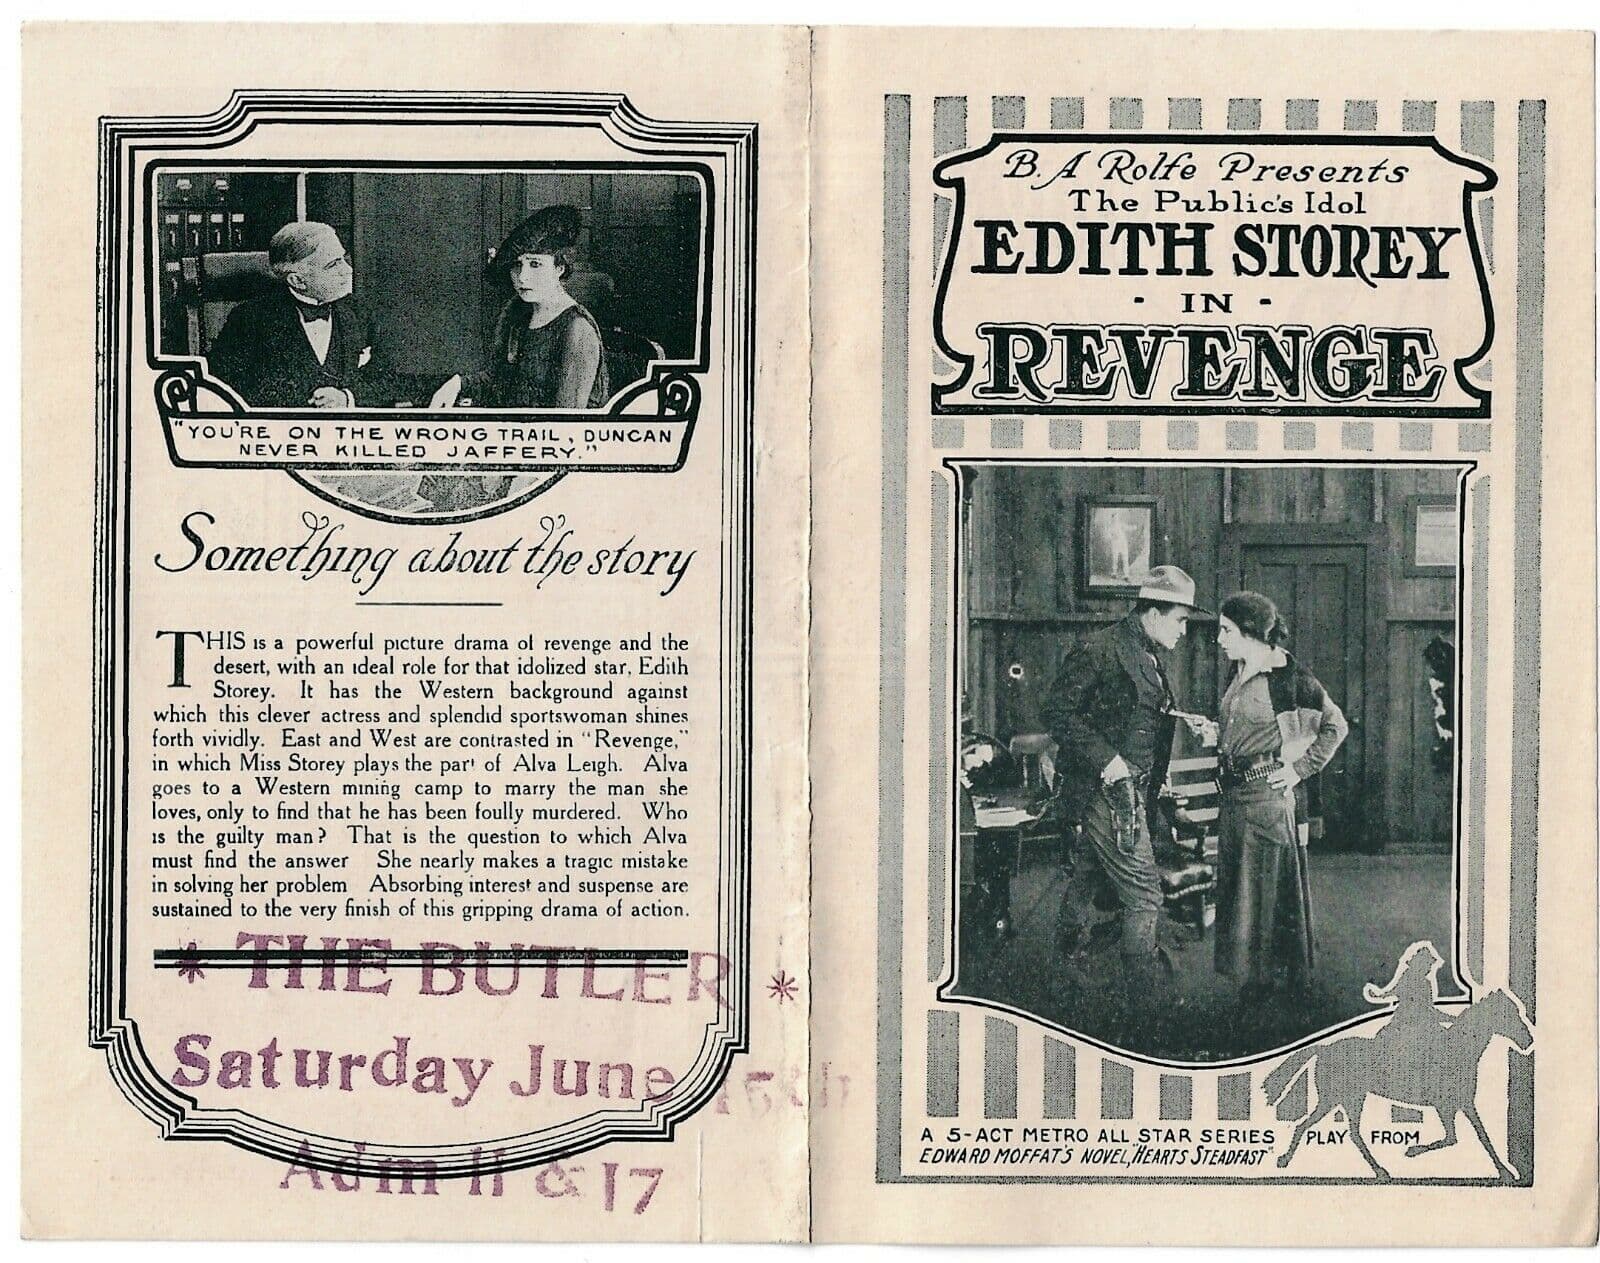 "YOU'RE ON THE WRONG TRAIL, DUNCAN
NEVER KILLED JAFFERY."
Something about the story
THIS is a powerful picture drama of revenge and the
desert, with an ideal role for that idolized star, Edith
Storey. It has the Western background against
which this clever actress and splendid sportswoman shines
forth vividly. East and West are contrasted in "Revenge,"
in which Miss Storey plays the part of Alva Leigh. Alva
goes to a Western mining camp to marry the man she
loves, only to find that he has been foully murdered. Who
is the guilty man? That is the question to which Alva
must find the answer She nearly makes a tragic mistake
in solving her problem Absorbing interest and suspense are
sustained to the very finish of this gripping drama of action.
* THE BUTLER *
Saturday June 15th
Adm 11 & 17
B. A Rolfe Presents
The Public's Idol
EDITH STOREY
- IN -
REVENGE
A 5-ACT METRO ALL STAR SERIES PLAY FROM
EDWARD MOFFAT'S NOVEL, "HEARTS STEADFAST"